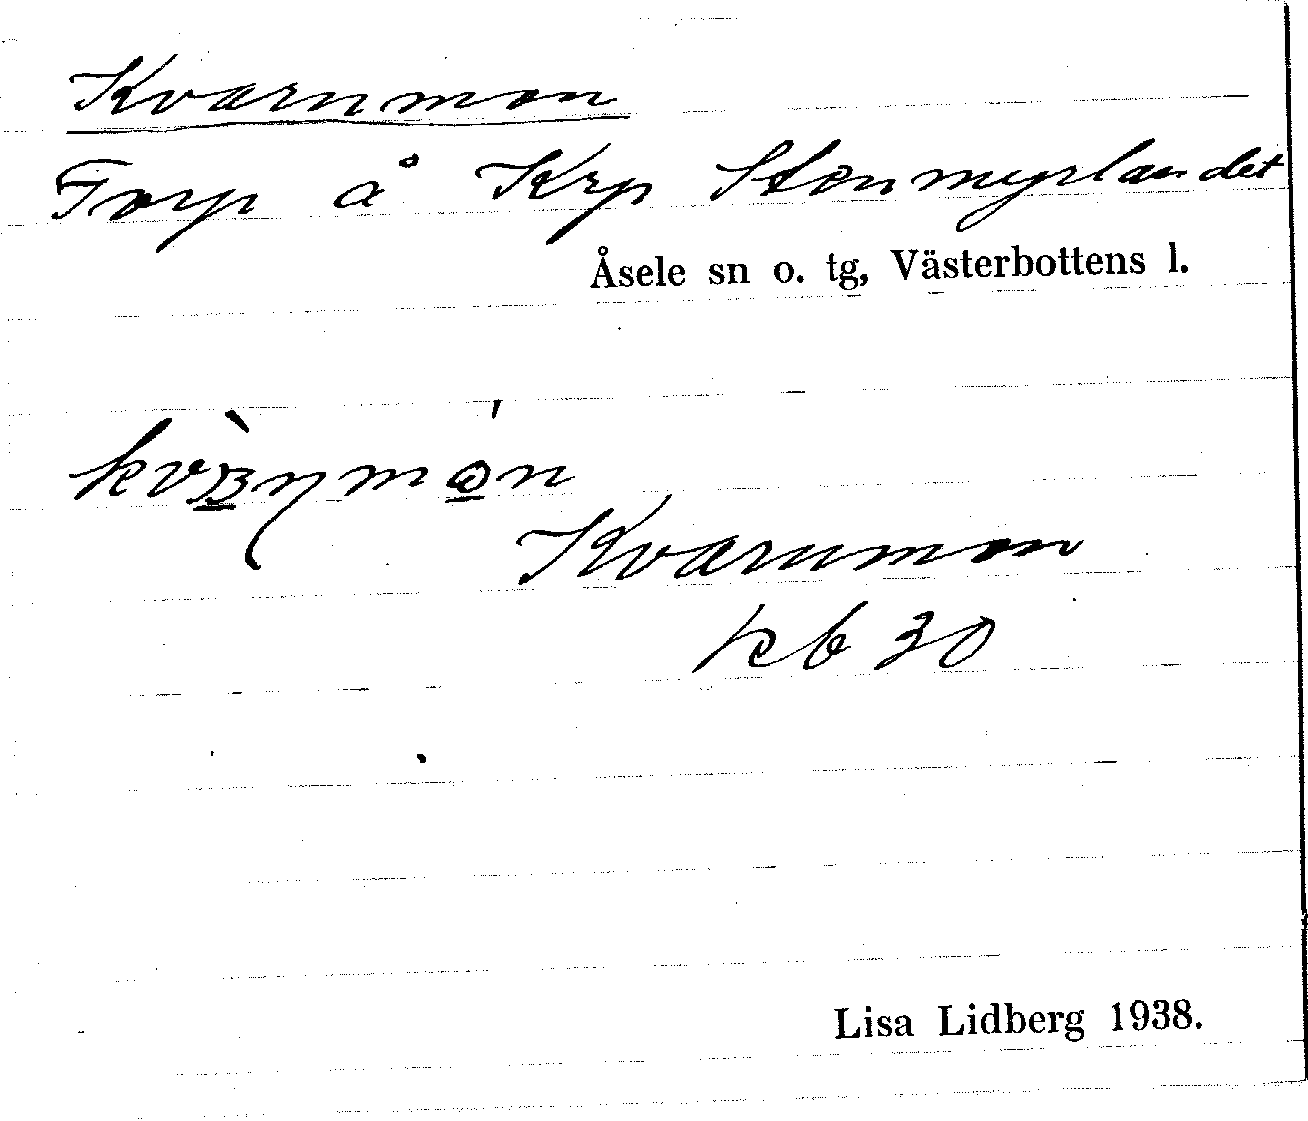 Kvarnmon
Torp å Krp Stenmyrlandet
Åsele sn o. tg, Västerbottens l.
Kvarnmon
kb 30
Lisa Lidberg 1938.